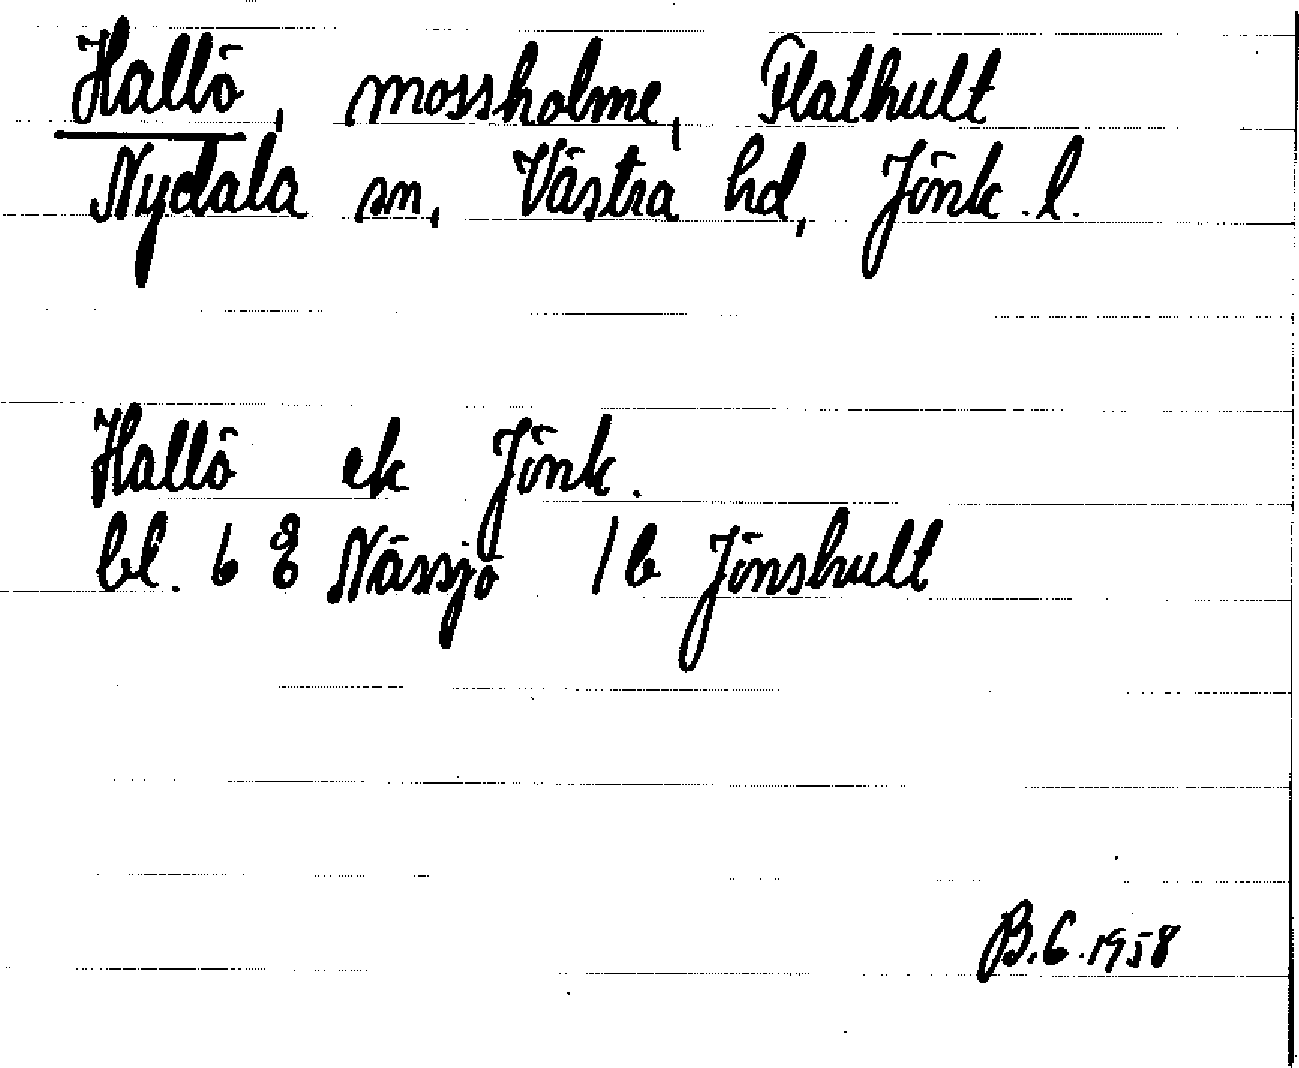 Hallö, mossholme, Flathult
Nydala sn, Västra hd, Jönk. l.
Hallö ek Jönk.
bl. 6 8 Nässjö 1 b Jönshult
B.G. 1958